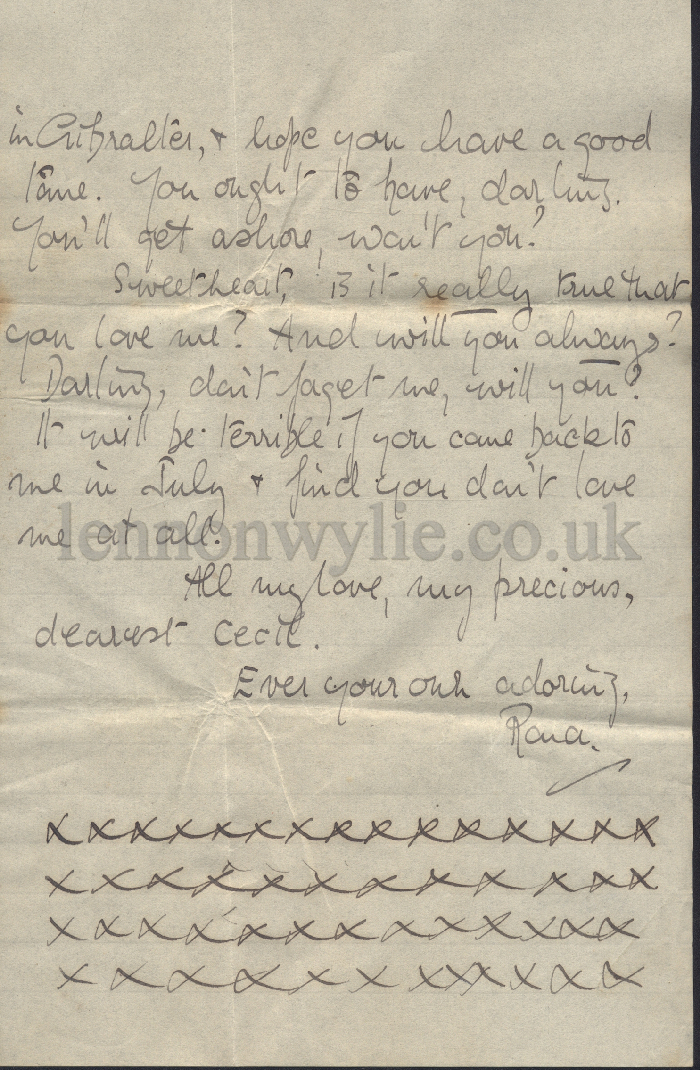 in Gibralter, & hope you have a good
time. You ought to have, darling.
You'll get ashore, won't you?
Sweetheart, is it really true that
you love me? And will you always?
Darling, don't forget me, will you?
It will be terrible if you come back to
me in July & find you don't love
me at all.
lennonwylie.co.uk
All my love, my precious,
dearest Cecil.
Ever your own adoring,
Rona.
x x x x x x x x x x x x x x x
x x x x x x x x x x x x x
x x x x x x x x x x x x x x
x x x x x x x x x x x x